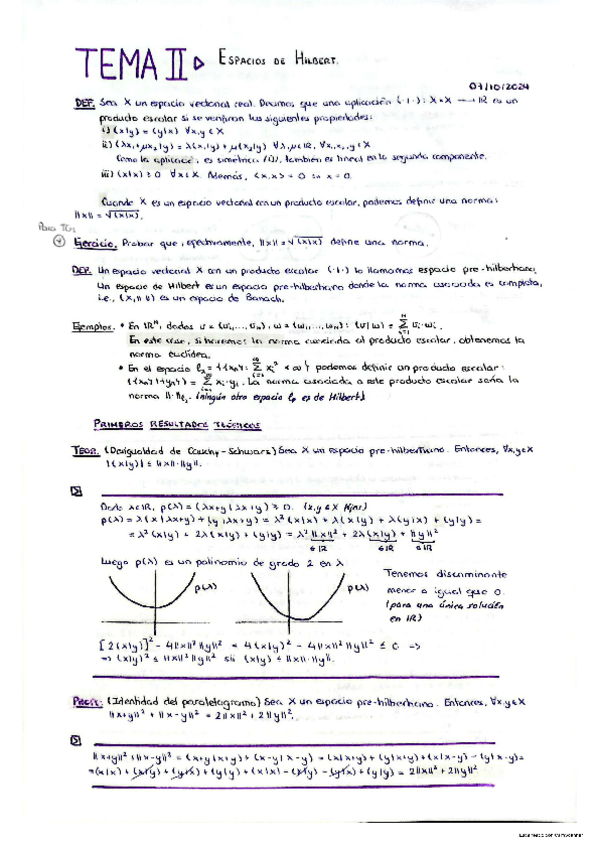 TEMA II ▷ ESPACIOS DE HILBERT.
07/10/2024
DEF. Sea X un espacio vectorial real. Diremos que una aplicación (·|·): X×X → ℝ es un
producto escalar si se verifican las siguientes propiedades:
i) (x|y) = (y|x) ∀x,y ∈ X
ii) (λx₁+μx₂|y) = λ(x₁|y) + μ(x₂|y) ∀λ,μ∈ℝ, ∀x₁,x₂,y ∈ X
Como la aplicación es simétrica (i), también es lineal en la segunda componente.
iii) (x|x) ≥ 0 ∀x∈X. Además, (x,x) = 0 sii x = 0.
Cuando X es un espacio vectorial con un producto escalar, podemos definir una norma:
||x|| = √(x|x).
Ejercicio. Probar que, efectivamente, ||x|| = √(x|x) define una norma.
DEF. Un espacio vectorial X con un producto escalar (·|·) lo llamamos espacio pre-hilbertiano.
Un espacio de Hilbert es un espacio pre-hilbertiano donde la norma asociada es completa,
i.e., (X,|| ||) es un espacio de Banach.
Ejemplos. • En ℝᴺ, dados u = (u₁,...,uₙ), w = (w₁,...,wₙ): (u|w) = Σ uᵢ·wᵢ.
En este caso, si hacemos la norma asociada al producto escalar, obtenemos la
norma euclídea.
• En el espacio ℓ₂ = {{xₙ}: Σ xᵢ² < ∞} podemos definir un producto escalar:
({xₙ}|{yₙ}) = Σ xᵢ·yᵢ. La norma asociada a este producto escalar sería la
norma ||·||ℓ₂. (ningún otro espacio ℓp es de Hilbert)
PRIMEROS RESULTADOS TEÓRICOS
TEOR. (Desigualdad de Cauchy-Schwarz) Sea X un espacio pre-hilbertiano. Entonces, ∀x,y∈X
|(x|y)| ≤ ||x||·||y||.
D
Dado λ∈ℝ, p(λ) = (λx+y|λx+y) ≥ 0. (x,y ∈ X fijos)
p(λ) = λ(x|λx+y) + (y|λx+y) = λ²(x|x) + λ(x|y) + λ(y|x) + (y|y) =
= λ²(x|x) + 2λ(x|y) + (y|y) = λ²||x||² + 2λ(x|y) + ||y||²
∈ℝ ∈ℝ ∈ℝ
Luego p(λ) es un polinomio de grado 2 en λ
p(λ) p(λ)
Tenemos discriminante
menor o igual que 0.
(para una única solución
en ℝ)
[2(x|y)]² - 4||x||²||y||² = 4(x|y)² - 4||x||²||y||² ≤ 0 ⇒
⇒ (x|y)² ≤ ||x||²||y||² sii (x|y) ≤ ||x||·||y||.
PROP. (Identidad del paralelogramo) Sea X un espacio pre-hilbertiano. Entonces, ∀x,y∈X
||x+y||² + ||x-y||² = 2||x||² + 2||y||².
D
||x+y||² + ||x-y||² = (x+y|x+y) + (x-y|x-y) = (x|x+y) + (y|x+y) + (x|x-y) - (y|x-y) =
= (x|x) + (x|y) + (y|x) + (y|y) + (x|x) - (x|y) - (y|x) + (y|y) = 2||x||² + 2||y||²